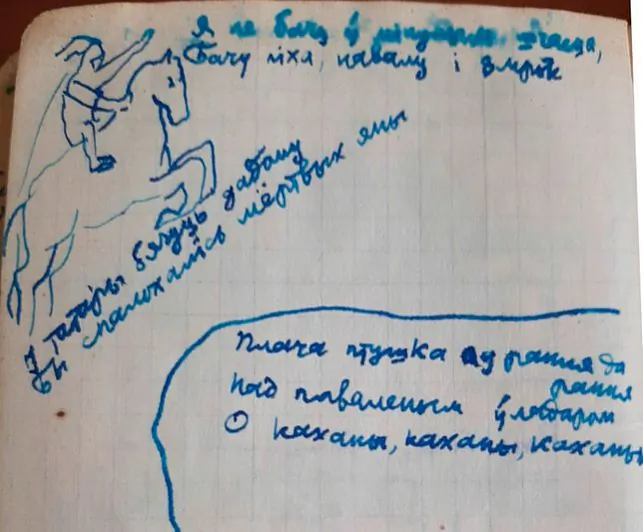 Я не бачу ў мінулым шчасця,
Бачу ліха, навалу і змрок
І татары бягуць дадому
Бо спалохаліся мёртвых яны
Плача птушка ад рання да
рання
над паваленым ўладаром
О каханы, каханы, каханы